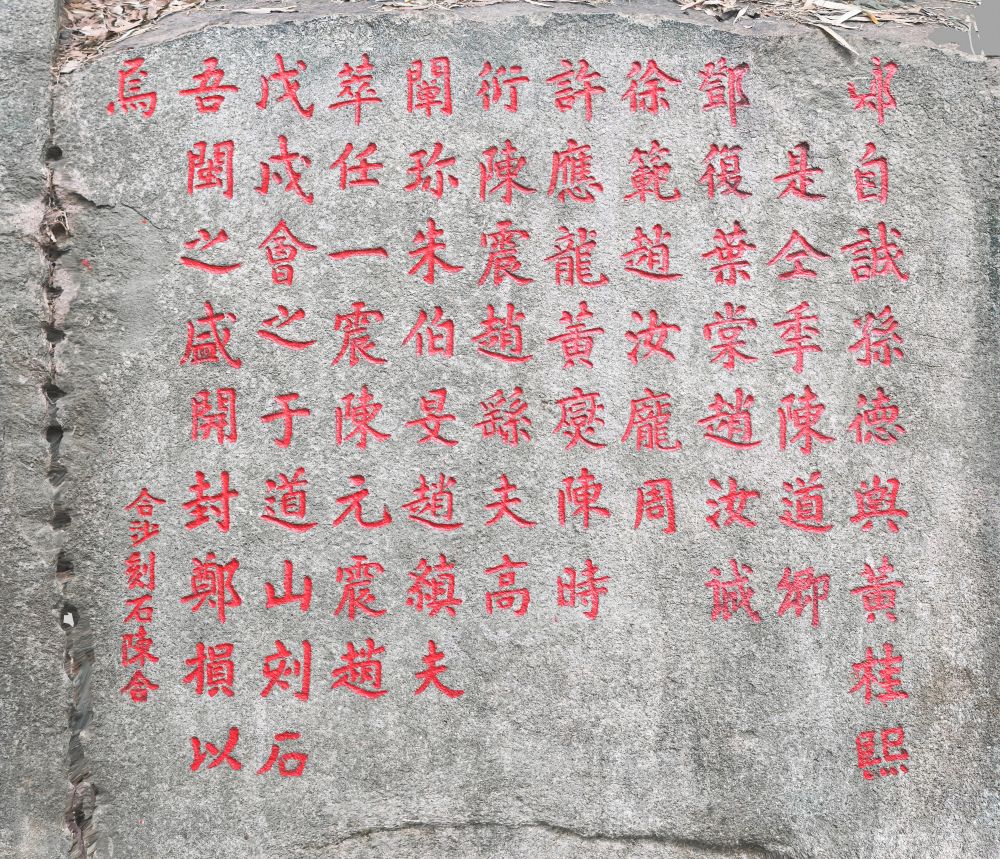 自誠孫德輿黃桂熙
是仝年陳道卿
鄧復葉棠趙汝誠
徐範趙汝龐周
許應龍黃奭陳時
衍陳震趙繇夫高
闡珎朱伯旻趙夫
萃任一震陳元震趙
戊戌會之于道山刻石
吾閩之盛開封鄭損以
焉
合沙刻石陳合